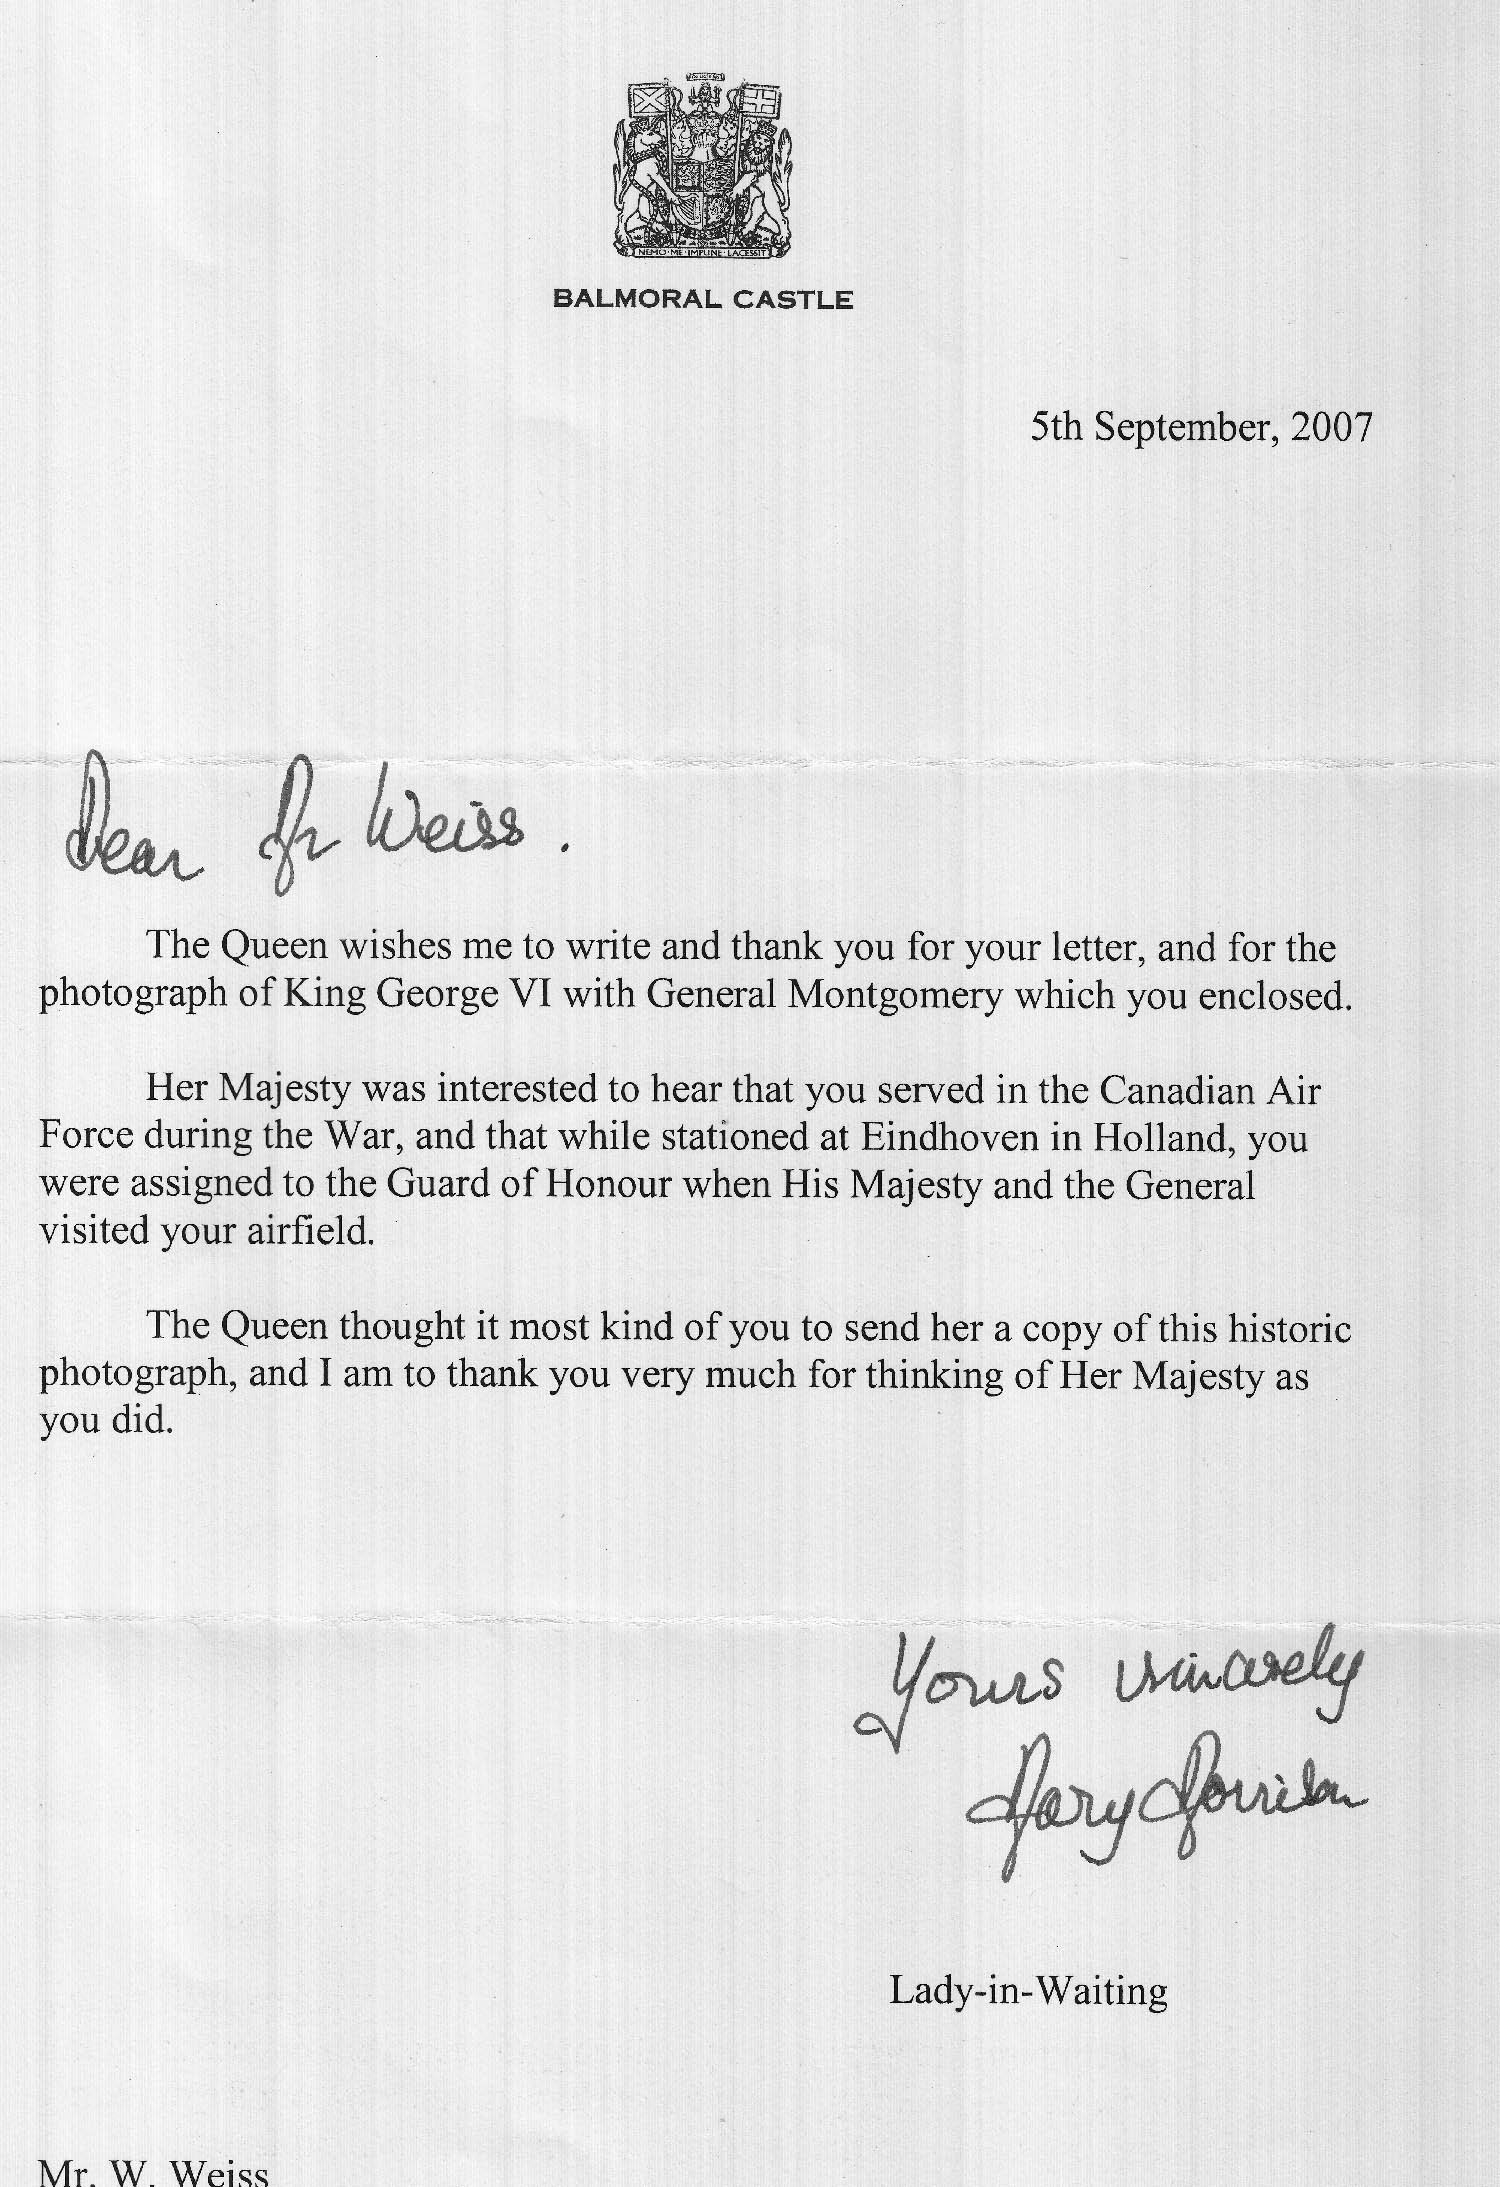 NEMO·ME·IMPUNE·LACESSIT
BALMORAL CASTLE
5th September, 2007
Dear Mr Weiss.
The Queen wishes me to write and thank you for your letter, and for the
photograph of King George VI with General Montgomery which you enclosed.
Her Majesty was interested to hear that you served in the Canadian Air
Force during the War, and that while stationed at Eindhoven in Holland, you
were assigned to the Guard of Honour when His Majesty and the General
visited your airfield.
The Queen thought it most kind of you to send her a copy of this historic
photograph, and I am to thank you very much for thinking of Her Majesty as
you did.
Yours sincerely
Mary Morrison
Lady-in-Waiting
Mr. W. Weiss